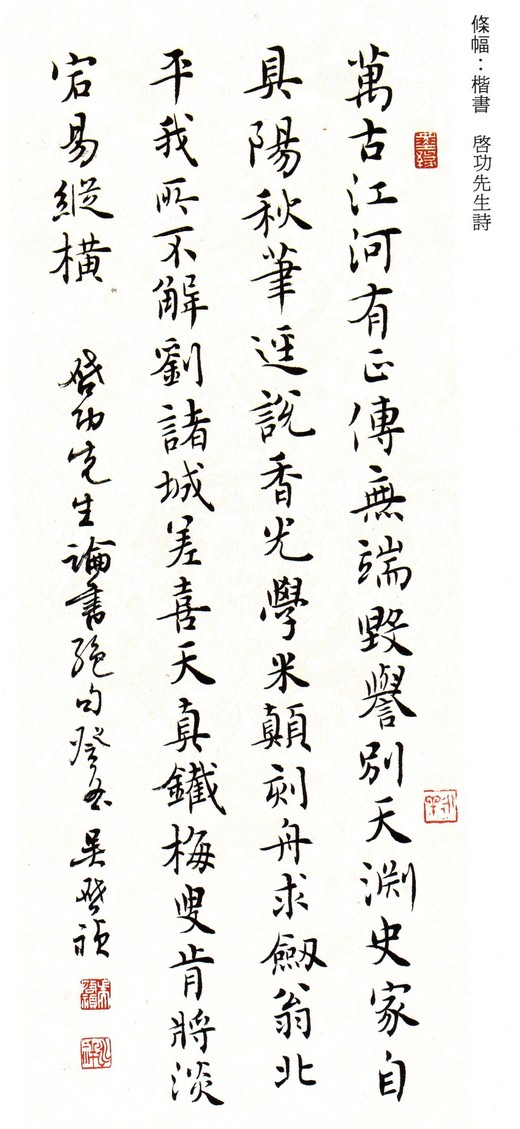 條幅：楷書　啓功先生詩
萬古江河有正傳無端毀譽別天淵史家自
具陽秋筆逕說香光學米顛刻舟求劍翁北
平我所不解劉諸城差喜天真鐵梅叟肯將淡
宕易縱橫
啓功先生論書絕句癸